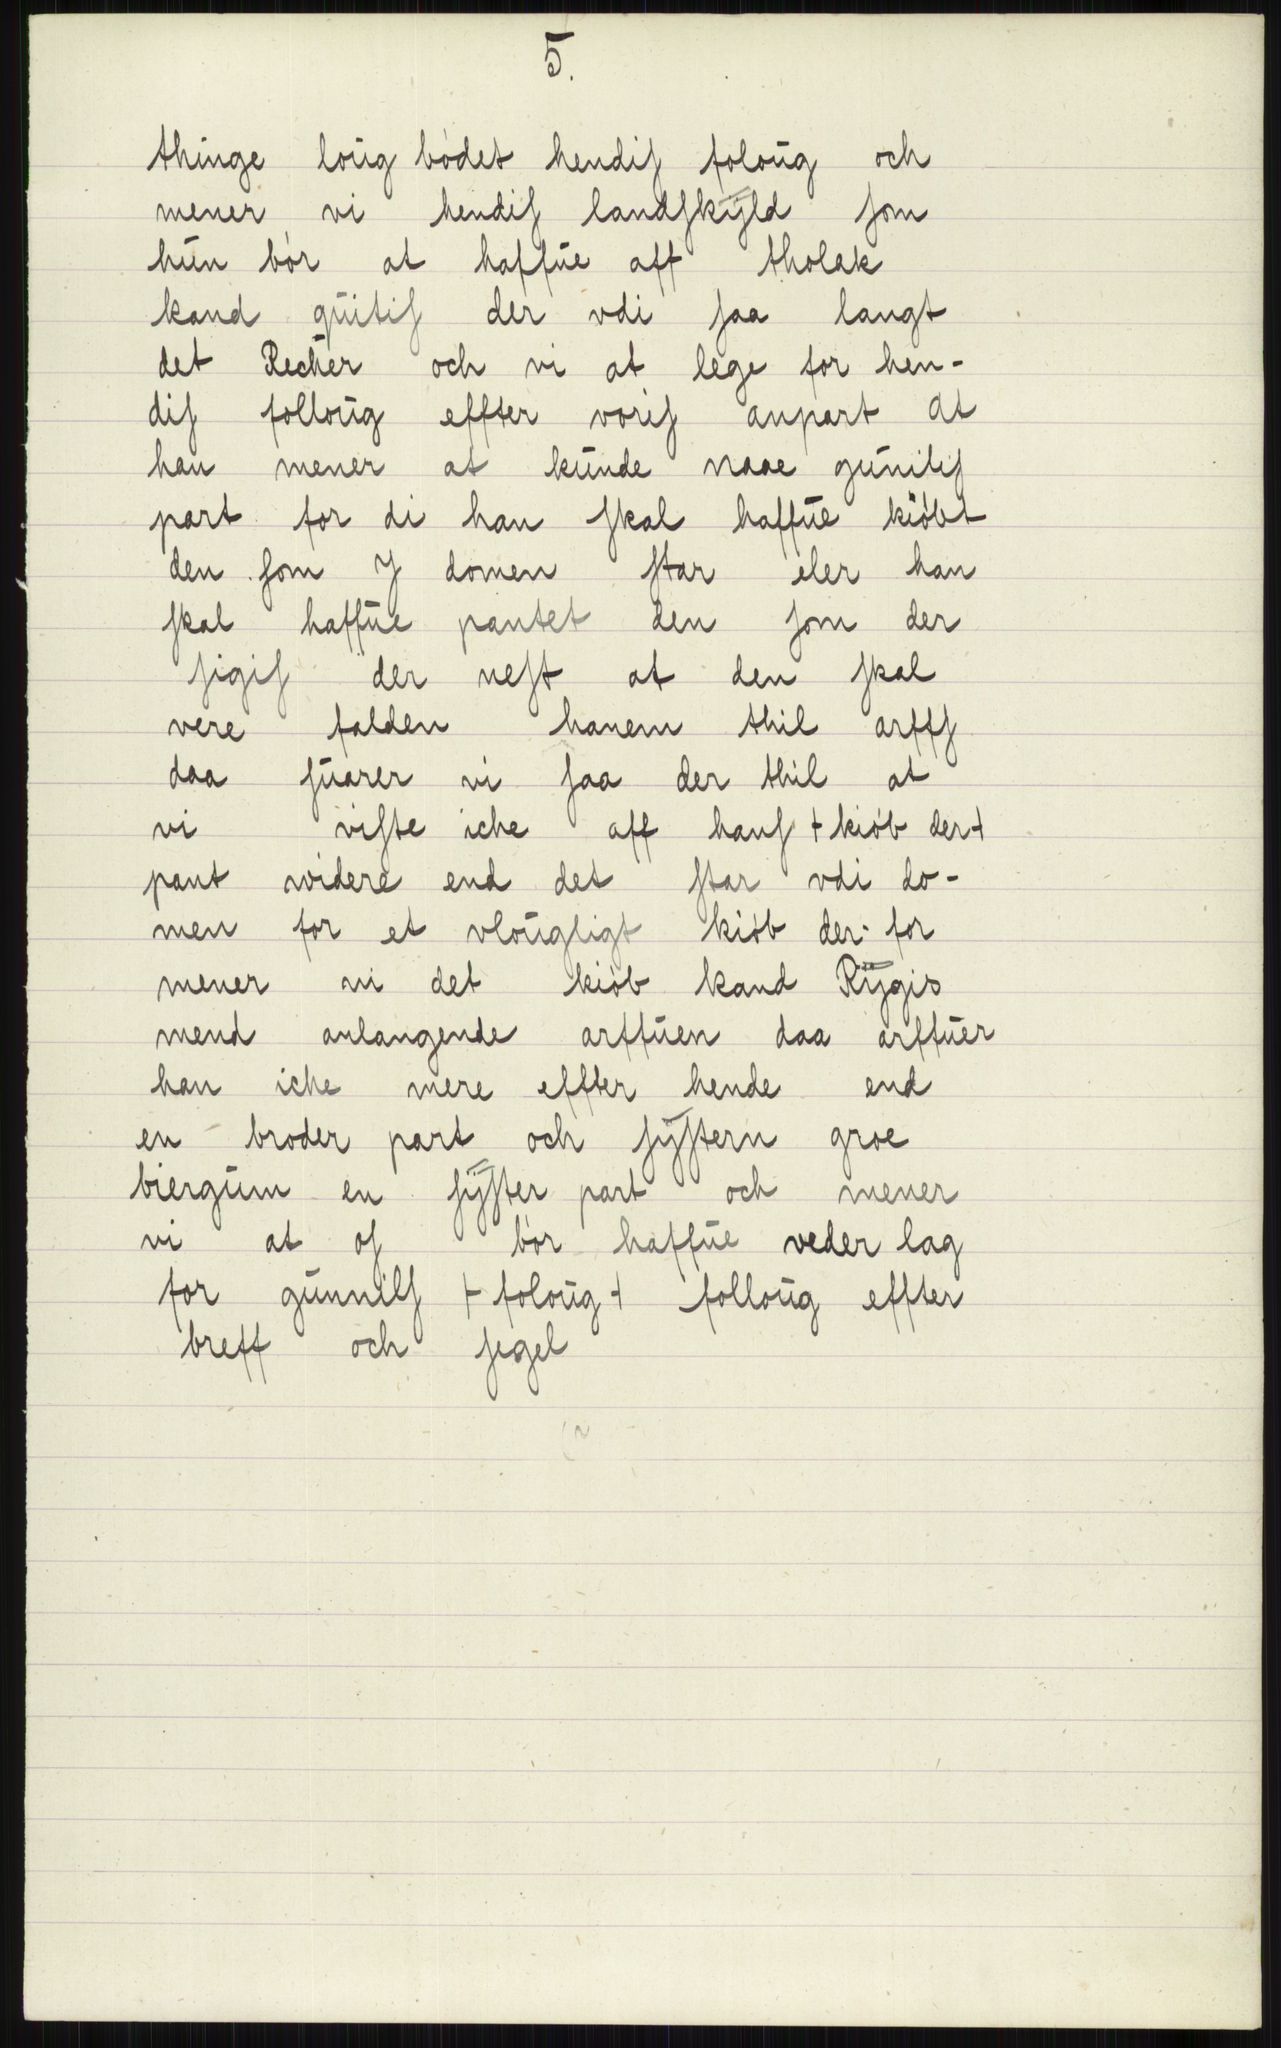 5.
thinge loūg bødet hendiſ foloūg och
mener vi hendiſ landſkÿld ſom
hūn bør at haffūe aff tholek
kand qūitiſ der vdi ſaa langt
det Recker och vi at lege for hen-
diſ folloūg effter voriſ anpart At
han mener at kūnde naae gūniliſ
part for di han ſkal haffūe kiøbt
den ſom J domen ſtar eler han
ſkal haffūe pantet den ſom der
ſigiſ der neſt at den ſkal
vere falden hanem thil arffſ
daa ſūarer vi ſaa der thil at
vi viſte iche aff hanſ + kiøb der +
pant widere end det ſtar vdi do-
men for et vloūgligt kiøb der for
mener vi det kiøb kand Rÿgis
mend anlangende arffūen daa arffūer
han iche mere effter hende end
en broder part och ſÿſtern groe
biergūm en ſÿſter part och mener
vi at oſ bør haffūe veder lag
for gūnnilſ + foloūg + folloūg effter
breff och ſegel